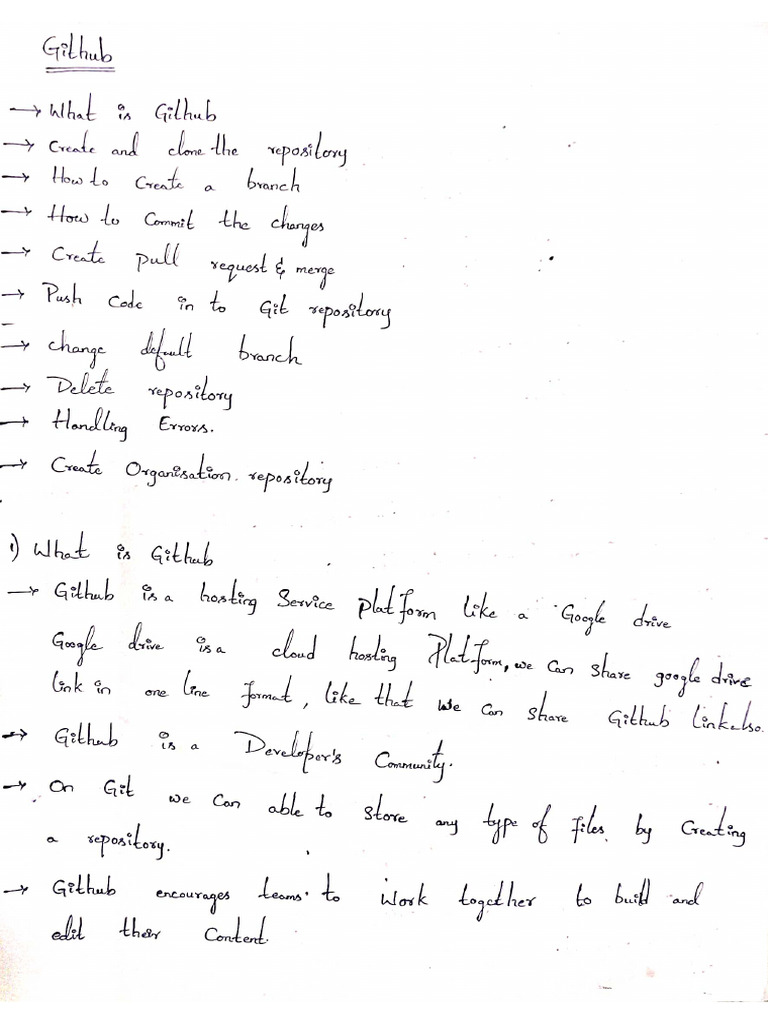 Github
→ What is Github
→ Create and clone the repository
→ How to Create a branch
→ How to Commit the changes
→ Create pull request & merge
→ Push Code in to Git repository
→ change default branch
→ Delete repository
→ Handling Errors.
→ Create Organisation. repository
1) What is Github
→ Github is a hosting Service Platform like a Google drive
Google drive is a cloud hosting Platform, we can share google drive
link in one line format, like that we can share Github link also.
→ Github is a Developer's Community.
→ On Git we can able to store any type of files by Creating
a repository.
→ Github encourages teams to work together to build and
edit their Content.